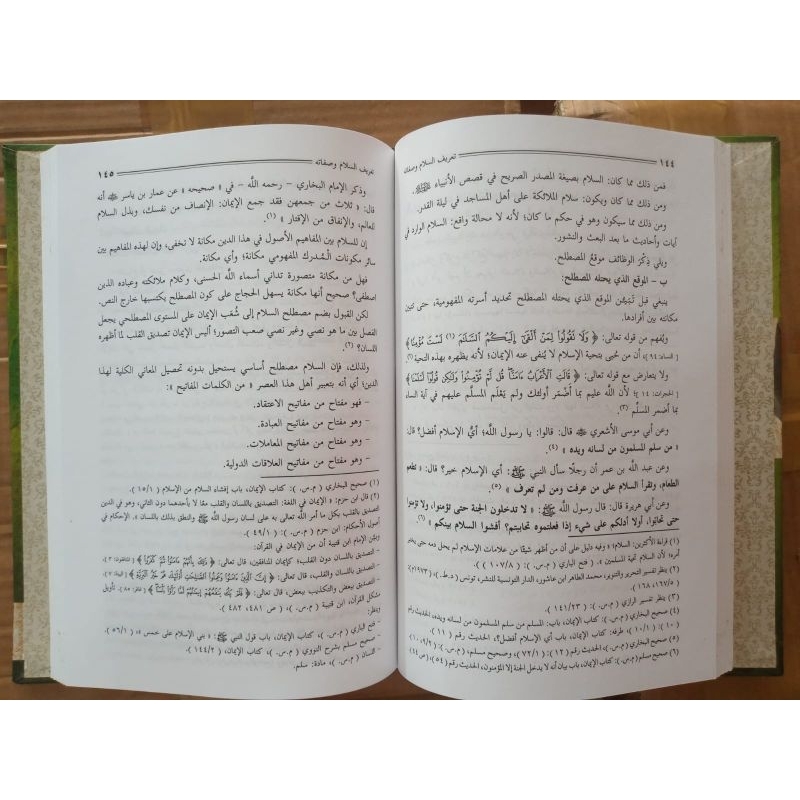 ١٤٤ تعريف السلام وصفاته
فمن ذلك مما كان: السلام بصيغة المصدر الصريح في قصص الأنبياء ﷺ.
ومن ذلك مما كان ويكون: سلام الملائكة على أهل المساجد في ليلة القدر.
ومن ذلك مما سيكون وهو في حكم ما كان؛ لأنه لا محالة واقع: السلام الوارد في
آيات وأحاديث ما بعد البعث والنشور.
ويلي ذِكْرَ الوظائف موقعُ المصطلح.
ب - الموقع الذي يحتله المصطلح:
ينبغي قبل تَبَيُّن الموقع الذي يحتله المصطلح تحديد أسرته المفهومية، حتى نتبين
مكانته بين أفرادها.
ويُفهم من قوله تعالى: ﴿ وَلَا نَقُولُوا لِمَنْ أَلْقَىٰ إِلَيْكُمُ السَّلَامَ (١) لَسْتَ مُؤْمِنًا ﴾
[النساء: ٩٤] أن من تحيى بتحية الإسلام لا يُنفى عنه الإيمان؛ لأنه يظهره بهذه التحية (٢)
ولا يتعارض مع قوله تعالى: ﴿ قَالَتِ الْأَعْرَابُ ءَامَنَّا قُل لَّمْ تُؤْمِنُوا وَلَٰكِن قُولُوا أَسْلَمْنَا ﴾
[الحجرات: ١٤]؛ لأن الله عليم بما أضمر أولئك ولم يَعْلَم المسلَّم عليهم في آية النساء
بما أضمر المسلِّم (٣).
وعن أبي موسى الأشعري قال: قالوا: يا رسول اللَّه! أيُّ الإسلام أفضل؟ قال:
« من سلم المسلمون من لسانه ويده » (٤).
وعن عبد اللَّه بن عمر أن رجلًا سأل النبي ﷺ: أي الإسلام خير؟ قال: « تطعم
الطعام، وتقرأ السلام على من عرفت ومن لم تعرف » (٥).
وعن أبي هريرة قال: قال رسول اللَّه ﷺ: « لا تدخلون الجنة حتى تؤمنوا، ولا تؤمنوا
حتى تحابّوا، أولا أدلكم على شيء إذا فعلتموه تحاببتم؟ أفشوا السلام بينكم » (٦)
(١) قراءة الأكثرين: السلام؛ « وفيه دليل على أن من أظهر شيئًا من علامات الإسلام لم يحل دمه حتى يختبر
أمره؛ لأن السلام تحية المسلمين ». فتح الباري ( م.س. ): ( ١٠٧/٨ ).
(٢) ينظر تفسير التحرير والتنوير، محمد الطاهر ابن عاشور، الدار التونسية للنشر، تونس ( د.ط. )، ( ١٩٧٣م ):
١٦٧/٥، ١٦٨.
(٣) ينظر تفسير الرازي ( م.س. ): ( ١٤١/٢٣ ).
(٤) صحيح البخاري ( م.س. ): كتاب الإيمان، باب: المسلم من سلم المسلمون من لسانه ويده، الحديث رقم
( ١٠ )، ( ١٠/١ )، طرفة: كتاب الإيمان، باب أي الإسلام أفضل؟، الحديث رقم ( ١١ ).
(٥) صحيح البخاري ( م.س. )، الحديث رقم ( ١٢ ): ( ٧٢/١ )، وصحيح مسلم، ( ٩/٢، ١٠ ).
(٦) صحيح مسلم ( م.س. ): كتاب الإيمان، باب بيان أنه لا يدخل الجنة إلا المؤمنون، الحديث رقم ( ٥٤ )،
تعريف السلام وصفاته ١٤٥
وذكر الإمام البخاري - رحمه اللَّه - في « صحيحه » عن عمار بن ياسر أنه
قال: « ثلاث من جمعهن فقد جمع الإيمان: الإنصاف من نفسك، وبذل السلام
للعالم، والإنفاق من الإقتار » (١).
إن للسلام بين المفاهيم الأصول في هذا الدين مكانة لا تخفى، وإن لهذه المفاهيم بين
سائر مكونات الـمُدرك المفهومي مكانة؛ وأي مكانة.
فهل من مكانة متصورة تداني أسماء اللَّه الحسنى، وكلام ملائكته وعباده الذين
اصطفى؟ صحيح أنها مكانة يسهل الحجاج على كون المصطلح يكتسبها خارج النص.
لكن القبول بضم مصطلح السلام إلى شُعَب الإيمان على المستوى المصطلحي يجعل
الفصل بين ما هو نصي وغير نصي صعب التصور؛ أليس الإيمان تصديق القلب لما أظهره
اللسان؟ (٢).
ولذلك، فإن السلام مصطلح أساسي يستحيل بدونه تحصيل المعاني الكلية لهذا
الدين؛ أي بتعبير أهل هذا العصر « من الكلمات المفاتيح »:
- فهو مفتاح من مفاتيح الاعتقاد.
- وهو مفتاح من مفاتيح العبادة.
- وهو مفتاح من مفاتيح المعاملات.
- وهو مفتاح من مفاتيح العلاقات الدولية.
(١) صحيح البخاري ( م.س. ): كتاب الإيمان، باب إفشاء السلام من الإسلام ( ٦٥/١ ).
(٢) قال ابن حزم: « الإيمان في اللغة: التصديق باللسان والقلب معًا لا بأحدهما دون الثاني، وهو في الدين
التصديق بالقلب بكل ما أمر اللَّه تعالى به على لسان رسول اللَّه ﷺ والنطق بذلك باللسان ». الإحكام في
أصول الأحكام: ابن حزم ( م.س. )، ( ٤٩/١ ).
وبيَّن الإمام ابن قتيبة أن من الإيمان في القرآن:
- التصديق باللسان دون القلب؛ كإيمان المنافقين، قال تعالى: ﴿ ذَٰلِكَ بِأَنَّهُمْ ءَامَنُوا ثُمَّ كَفَرُوا ﴾ [المنافقون: ٣].
- التصديق باللسان والقلب، قال تعالى: ﴿ إِنَّ الَّذِينَ ءَامَنُوا وَعَمِلُوا الصَّالِحَاتِ أُولَٰئِكَ هُمْ خَيْرُ الْبَرِيَّةِ ﴾ [البينة: ٧].
- التصديق ببعض والتكذيب ببعض، قال تعالى: ﴿ فَلَمْ يَكُ يَنفَعُهُمْ إِيمَانُهُمْ لَمَّا رَأَوْا بَأْسَنَا ﴾ [غافر: ٨٥]. تأويل
مشكل القرآن، ابن قتيبة ( م.س. )، ( ص ٤٨١، ٤٨٢ ).
وينظر:
- فتح الباري ( م.س. )، كتاب الإيمان، باب قول النبي ﷺ: « بني الإسلام على خمس »، ( ٥٦/١ ).
- صحيح مسلم بشرح النووي ( م.س. )، كتاب الإيمان، ( ١٤٤/٢ ).
- اللسان ( م.س. )، مادة: سلم.